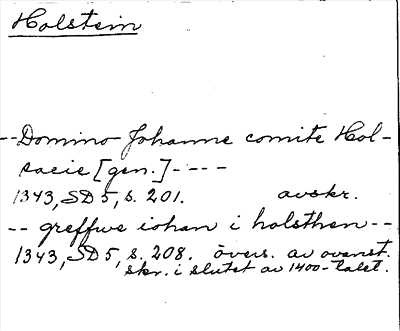 Holstein
--Domino Johanne comite Hol-
sacie [gen.]----
1343, SD 5, s. 201. avskr.
-- greffwe iohan i holsthen--
1343, SD 5, s. 208. övers. av ovanst.
skr. i slutet av 1400-talet.